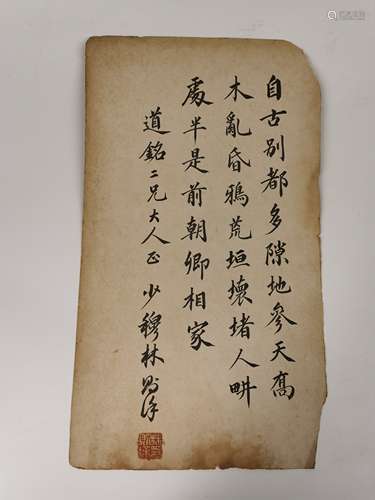 自古别都多隙地參天高
木亂昏鴉荒垣壞堵人畊
處半是前朝卿相家
道銘二兄大人正 少穆林則徐